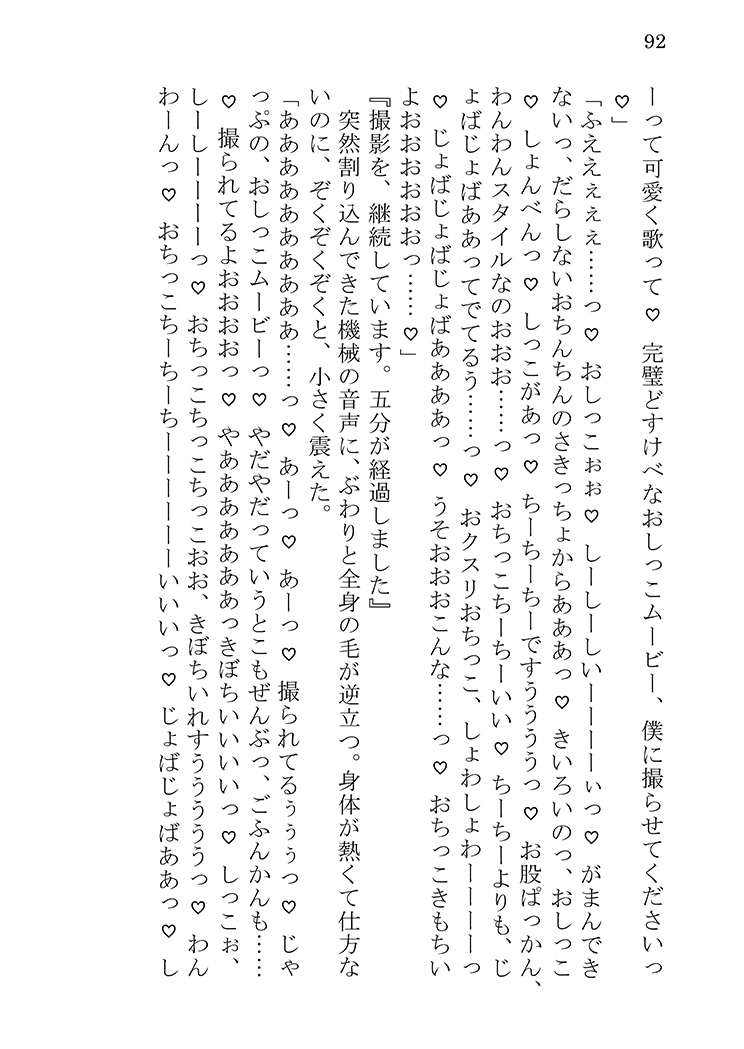 92
ーって可愛く歌って♡　完璧どすけべなおしっこムービー、僕に撮らせてくださいっ
♡」
「ふええぇぇぇ……っ♡　おしっこぉぉ♡　しーしーしいーーーーぃっ♡　がまんでき
ないっ、だらしないおちんちんのさきっちょからあああっ♡　きいろいのっ、おしっこ
♡　しょんべんっ♡　しっこがあっ♡　ちーちーちーですうううぅっ♡　お股ぱっかん、
わんわんスタイルなのおおお……っ♡　おちっこちーちーいい♡　ちーちーよりも、じ
ょばじょばああってでてるう……っ♡　おクスリおちっこ、しょわしょわーーーーっ
♡　じょばじょばじょばああああっ♡　うそおおおこんな……っ♡　おちっこきもちい
よおおおおおおっ……♡」
『撮影を、継続しています。五分が経過しました』
　突然割り込んできた機械の音声に、ぶわりと全身の毛が逆立つ。身体が熱くて仕方な
いのに、ぞくぞくぞくと、小さく震えた。
「ああああああああああ……っ♡　あーっ♡　あーっ♡　撮られてるぅぅぅっ♡　じゃ
っぷの、おしっこムービーっ♡　やだやだっていうとこもぜんぶっ、ごふんかんも……
♡　撮られてるよおおおおっ♡　やあああああああっきぼちいいいいっ♡　しっこぉ、
しーしーーーーっ♡　おちっこちっこちっこおお、きぼちいれすうううううっ♡　わん
わーんっ♡　おちっこちーちーちーーーーーーいいいっ♡　じょばじょばああっ♡　し